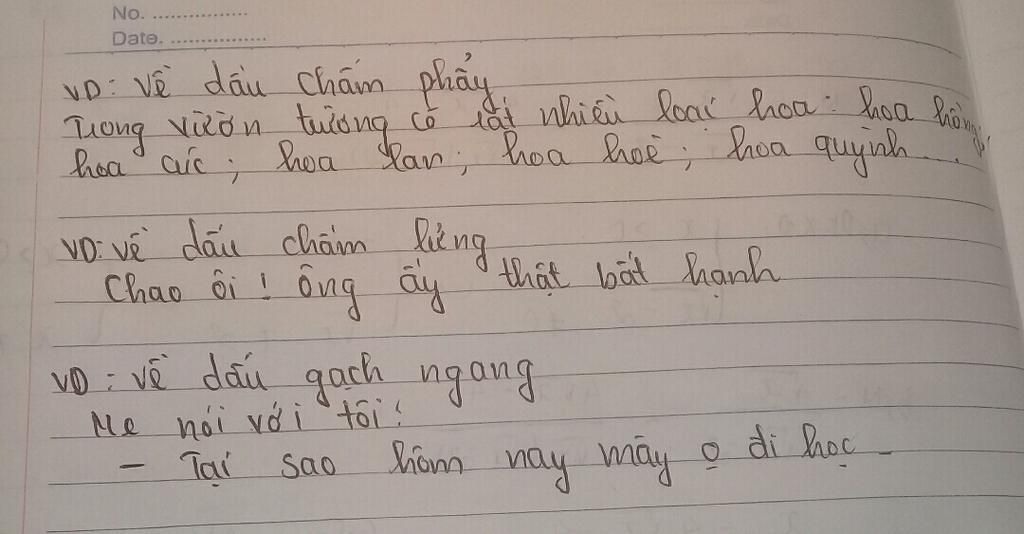 No. ..................
Date. ..................
VD: Về dấu chấm phẩy
Trong vườn tường có rất nhiều loại hoa: hoa hồng;
hoa cúc; hoa lan; hoa hoè; hoa quỳnh...
VD: Về dấu chấm lửng
Chao ôi! Ông ấy thật bất hạnh
VD: Về dấu gạch ngang
Mẹ nói với tôi:
- Tại sao hôm nay mày o đi học -